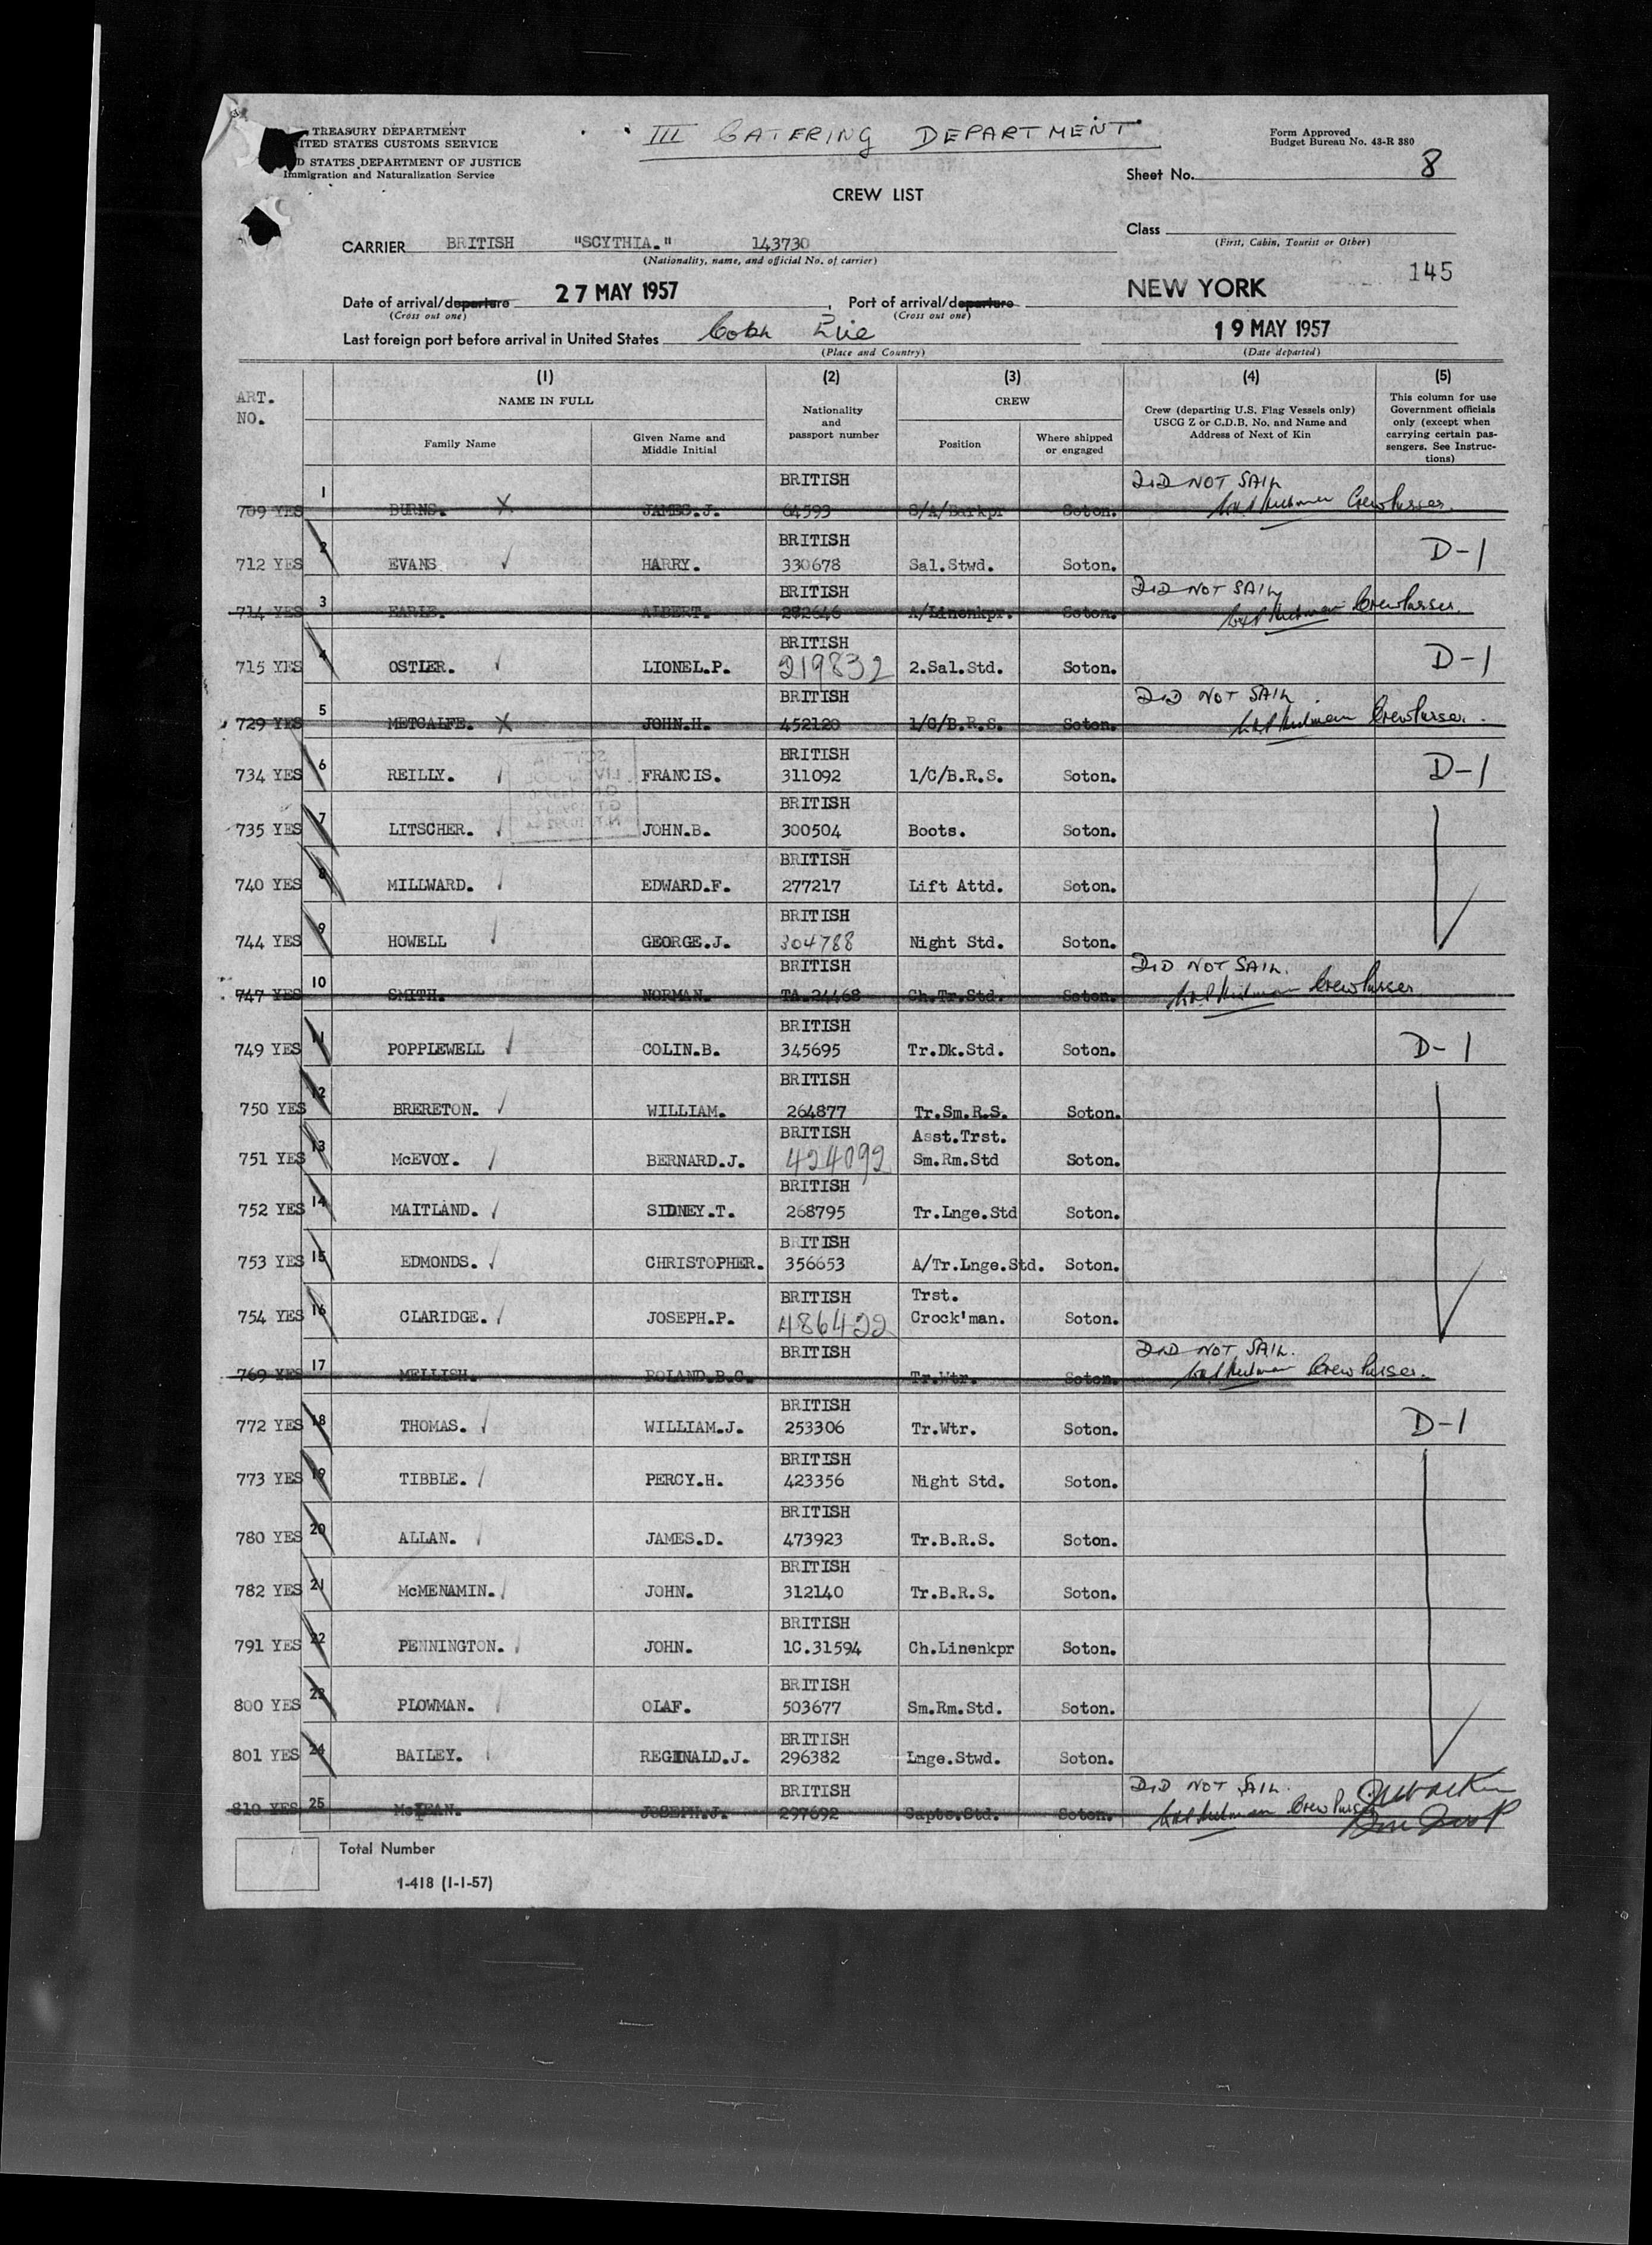 TREASURY DEPARTMENT
UNITED STATES CUSTOMS SERVICE
D STATES DEPARTMENT OF JUSTICE
Immigration and Naturalization Service
III CATERING DEPARTMENT
Form Approved
Budget Bureau No. 43-R 380
Sheet No. 8
CREW LIST
Class
(First, Cabin, Tourist or Other)
CARRIER BRITISH "SCYTHIA." 143730
(Nationality, name, and official No. of carrier)
145
Date of arrival/departure 27 MAY 1957, Port of arrival/departure NEW YORK
(Cross out one) (Cross out one)
Last foreign port before arrival in United States Cobh Eire 19 MAY 1957
(Place and Country) (Date departed)
ART. NO.
(1) (2) (3) (4) (5)
NAME IN FULL
Family Name
Given Name and Middle Initial
Nationality and passport number
CREW
Position
Where shipped or engaged
Crew (departing U.S. Flag Vessels only) USCG Z or C.D.B. No. and Name and Address of Next of Kin
This column for use Government officials only (except when carrying certain passengers. See Instructions)
709 YES 1 BURNS. X JAMES.J. BRITISH 64593 S/A/Barkpr Soton. DID NOT SAIL Crew Purser.
712 YES 2 EVANS HARRY. BRITISH 330678 Sal.Stwd. Soton. D-1
714 YES 3 EARLE. ALBERT. BRITISH 282646 A/Linenkpr. Soton. DID NOT SAIL Crew Purser.
715 YES 4 OSTLER. LIONEL.P. BRITISH 219832 2.Sal.Std. Soton. D-1
729 YES 5 METCALFE. X JOHN.H. BRITISH 452120 1/C/B.R.S. Soton. DID NOT SAIL Crew Purser.
734 YES 6 REILLY. FRANCIS. BRITISH 311092 1/C/B.R.S. Soton. D-1
735 YES 7 LITSCHER. JOHN.B. BRITISH 300504 Boots. Soton.
740 YES 8 MILLWARD. EDWARD.F. BRITISH 277217 Lift Attd. Soton.
744 YES 9 HOWELL GEORGE.J. BRITISH 304788 Night Std. Soton.
747 YES 10 SMITH. NORMAN. BRITISH TA.24468 Ch.Tr.Std. Soton. DID NOT SAIL. Crew Purser
749 YES 11 POPPLEWELL COLIN.B. BRITISH 345695 Tr.Dk.Std. Soton. D-1
750 YES 12 BRERETON. WILLIAM. BRITISH 264877 Tr.Sm.R.S. Soton.
751 YES 13 McEVOY. BERNARD.J. BRITISH 424092 Asst.Trst. Sm.Rm.Std Soton.
752 YES 14 MAITLAND. SIDNEY.T. BRITISH 268795 Tr.Lnge.Std Soton.
753 YES 15 EDMONDS. CHRISTOPHER. BRITISH 356653 A/Tr.Lnge.Std. Soton.
754 YES 16 CLARIDGE. JOSEPH.P. BRITISH 486422 Trst. Crock'man. Soton.
769 YES 17 MELLISH. ROLAND.B.C. BRITISH Tr.Wtr. Soton. DID NOT SAIL. Crew Purser.
772 YES 18 THOMAS. WILLIAM.J. BRITISH 253306 Tr.Wtr. Soton. D-1
773 YES 19 TIBBLE. PERCY.H. BRITISH 423356 Night Std. Soton.
780 YES 20 ALLAN. JAMES.D. BRITISH 473923 Tr.B.R.S. Soton.
782 YES 21 McMENAMIN. JOHN. BRITISH 312140 Tr.B.R.S. Soton.
791 YES 22 PENNINGTON. JOHN. BRITISH 1C.31594 Ch.Linenkpr Soton.
800 YES 23 PLOWMAN. OLAF. BRITISH 503677 Sm.Rm.Std. Soton.
801 YES 24 BAILEY. REGINALD.J. BRITISH 296382 Lnge.Stwd. Soton.
810 YES 25 McLEAN. JOSEPH.J. BRITISH 297692 Sapte.Std. Soton. DID NOT SAIL. Crew Purser
Total Number
1-418 (1-1-57)